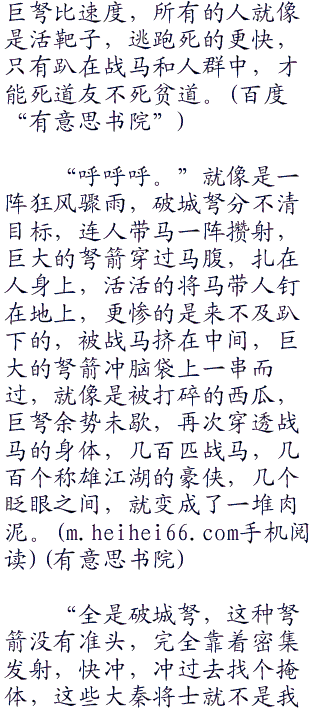 巨弩比速度，所有的人就像
是活靶子，逃跑死的更快，
只有趴在战马和人群中，才
能死道友不死贫道。(百度
“有意思书院”)
“呼呼呼。”就像是一
阵狂风骤雨，破城弩分不清
目标，连人带马一阵攒射，
巨大的弩箭穿过马腹，扎在
人身上，活活的将马带人钉
在地上，更惨的是来不及趴
下的，被战马挤在中间，巨
大的弩箭冲脑袋上一串而
过，就像是被打碎的西瓜，
巨弩余势未歇，再次穿透战
马的身体，几百匹战马，几
百个称雄江湖的豪侠，几个
眨眼之间，就变成了一堆肉
泥。(m.heihei66.com手机阅
读)(有意思书院)
“全是破城弩，这种弩
箭没有准头，完全靠着密集
发射，快冲，冲过去找个掩
体，这些大秦将士就不是我